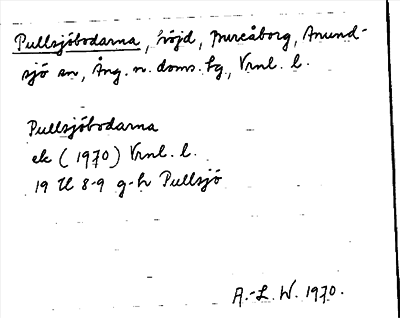 Pullsjöbodarna, höjd, Junsåborg, Anund-
sjö sn, Ång. n. doms. fg., Vrnl. l.
Pullsjöbodarna
ek (1970) Vrnl. l.
19 H 8-9 g-h Pullsjö
A.-L. W. 1970.